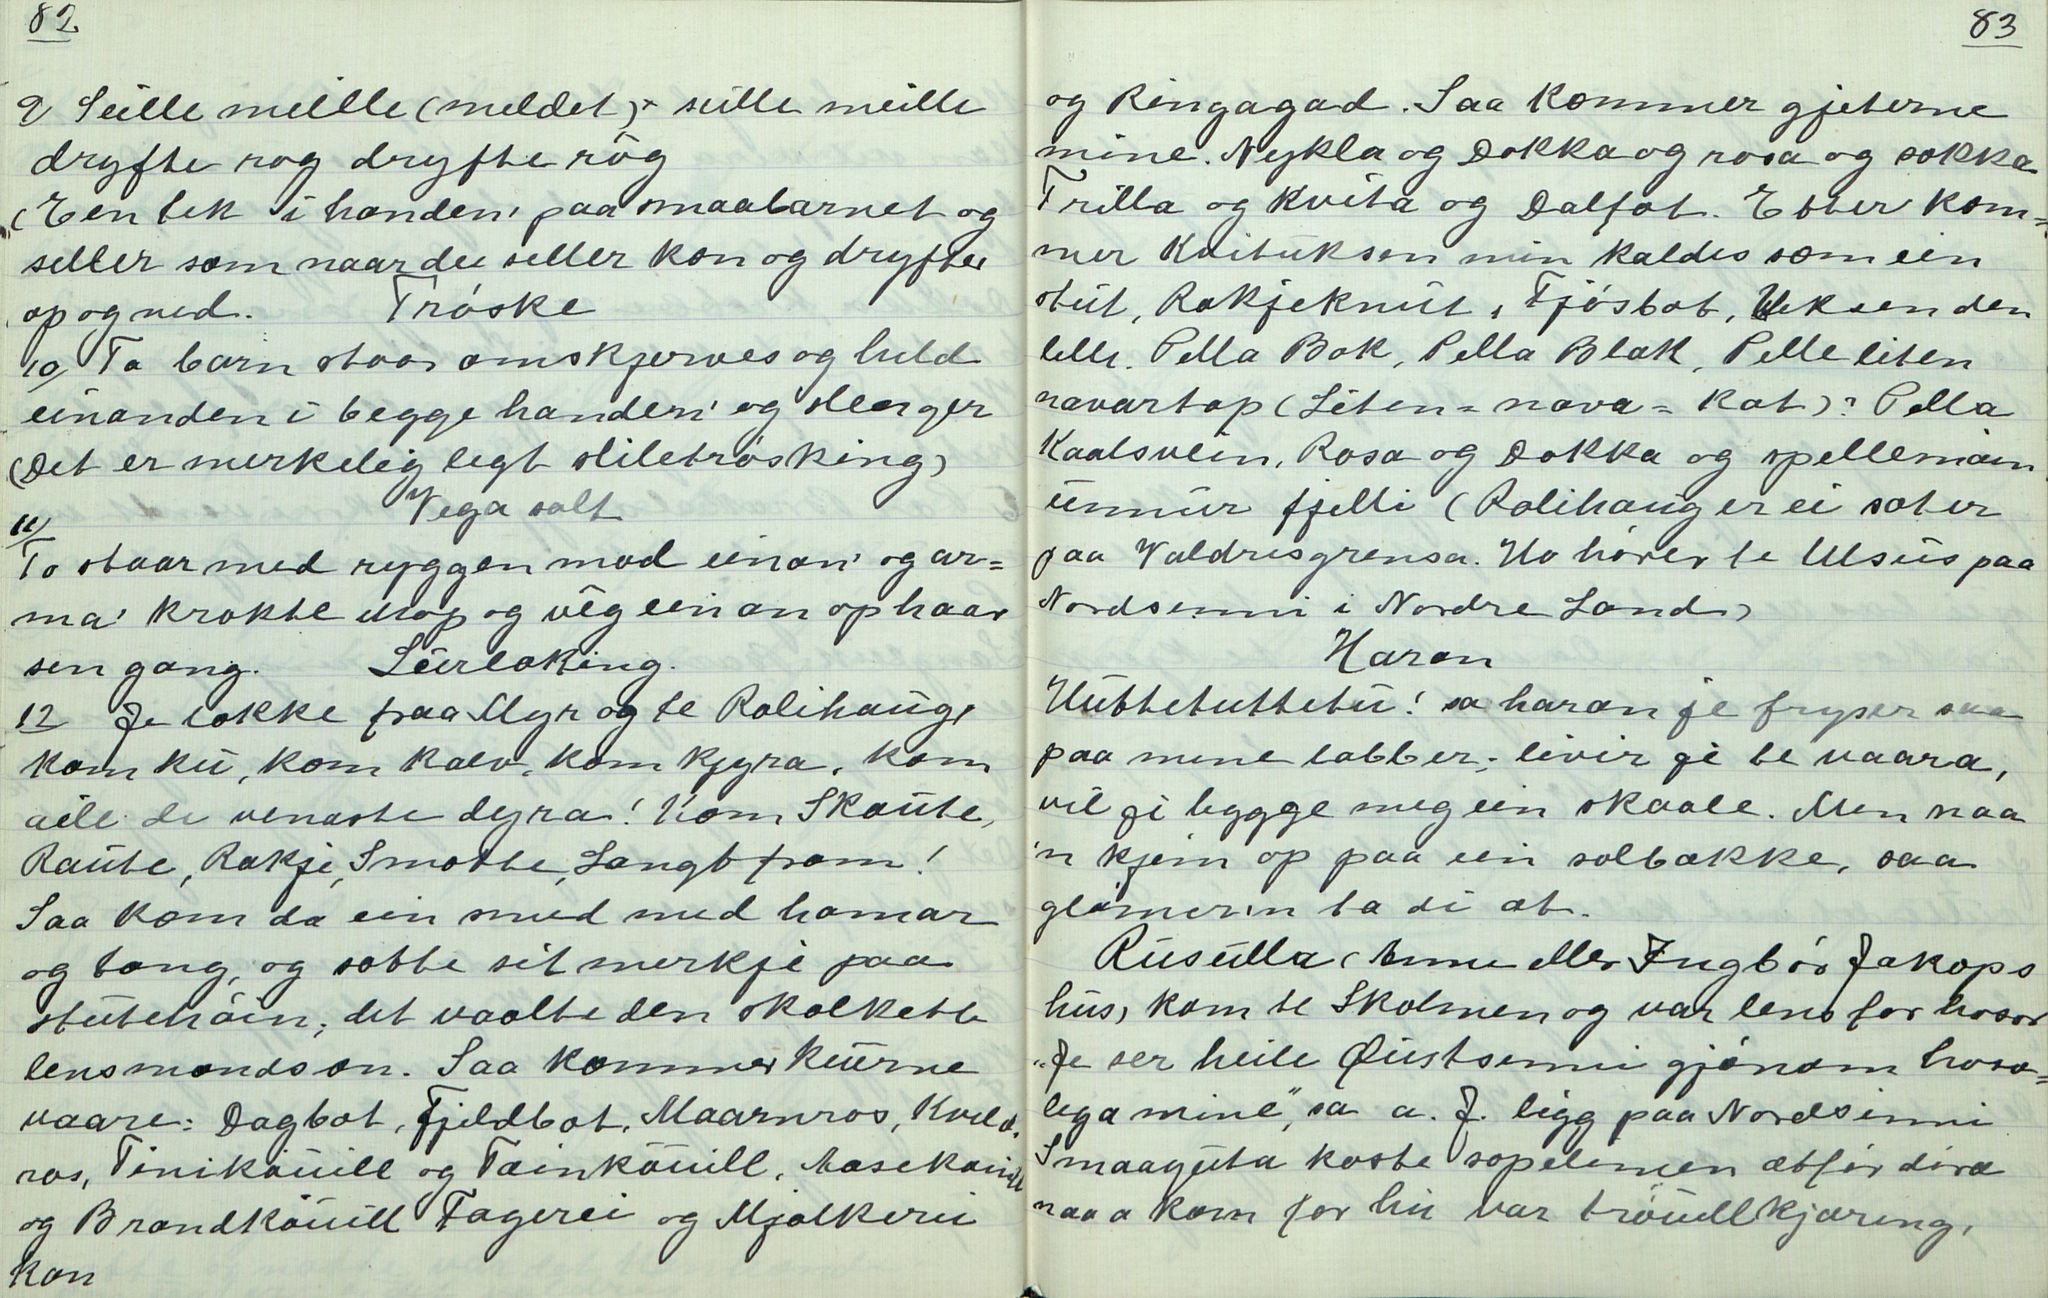 82
9 Seille meille (meldet) + seille meille
dryfte rog dryfte róg
(Ein tek i handen' paa smaabarnet og
seller som naar du seller kon og dryfter
op og ned. Tróske
10/ To barn staar omskjerves og held
einanden i begge handen' og slenger
(Det er merkelig legt sliletrósking)
Vega salt
11/
To staar med ryggen mod einan' og ar=
ma' krokte ihop og veg einan op haar
sen gang. Leirloking.
12 Je lokke fraa Myr og te Rolihaug,
kom ku, kom kalv, kom kjyra, kom
aille de venaste dyra! Kom Skaute,
Raute, Rakje, Smotte, Langt fram!
Saa kom da ein smed med hamar
og tang, og sette sit merkje paa
stutehóin; det vaalte den skalkette
lensmandson. Saa kommer kuurne
vaare: Dagbot, Fjeldbot, Maarnros, Kveld.
ros, Tinikóuill og Tainkóuill, Aasekouill
og Brandkóuill Fagerei og Mjølkerei
kan
83
og Ringagad. Saa kommer gjeterne
mine. Nykla og Dokka og rosa og sokka
Trilla og Kvita og Dalfot. Etter kom=
mer Kvituksen min kaldes som ein
stut, Rakjeknut, Fjósbot, Uksen den
lelle. Pella Bok, Pella Blak, Pelle liten
navartop (Liten = nava = kat)? Pella
Kaalsvein, Rosa og Dokka og spellemain
unnur fjelli (Rolihaug er ei sæter
paa Valdresgrensa. Ho hórer te Ulsus paa
Nordsinni i Nordre Land)
Haran
Huttetuttetu! sa haran je fryser saa
paa mine labber; livir je te vaara,
vil je byggje meg ein skaale. Men naa
'n kjem op paa ein solbakke, saa
glómer'n ta di at.
Rusulla (Anne eller Ingbór Jakops
hus) kom te Skolmen og var lens for hosor
"Je ser heile Øustsinni gjónom hoso=
lega mine", sa a. J. ligg paa Nordsinni
Smaaguta koste sopelimen ætfór dóra
naa a kom for hu var tróuellkjæring,